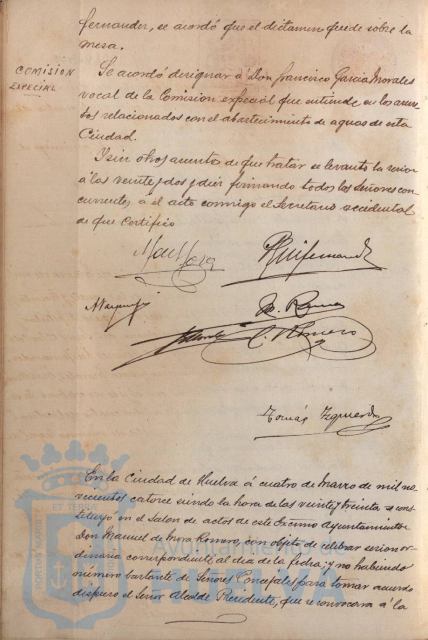 Fernandez, se acordó que el dictamen quede sobre la
mesa.
COMISION
ESPECIAL
Se acordó designar á Don Francisco Garcia Morales
vocal de la Comision especial que entiende en los asun-
tos relacionados con el abastecimiento de aguas de esta
Ciudad.
Y sin otros asuntos de que tratar se levantó la sesion
á las veinte y dos y diez firmando todos los Señores con-
currentes á el acto conmigo el Secretario accidental
de que certifico
C. Romero
Tomás Izquierdo
En la Ciudad de Huelva á cuatro de Marzo de mil no-
vecientos catorce siendo la hora de las veinte y treinta se cons-
tituyó en el Salon de actos de este Excmo Ayuntamiento
Don Manuel de Mora Romero, con objeto de celebrar sesion or-
dinaria correspondiente al dia de la fecha; y no habiendo
número bastante de Señores Concejales para tomar acuerdo
dispuso el Señor Alcalde Presidente, que se convocara á la
Ayuntamiento de
HUELVA